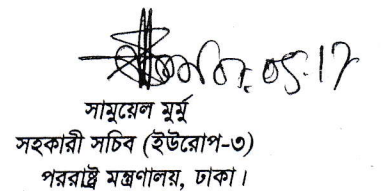 ০৮.০৫.১৭
সামুয়েল মুর্মু
সহকারী সচিব (ইউরোপ-৩)
পররাষ্ট্র মন্ত্রণালয়, ঢাকা।